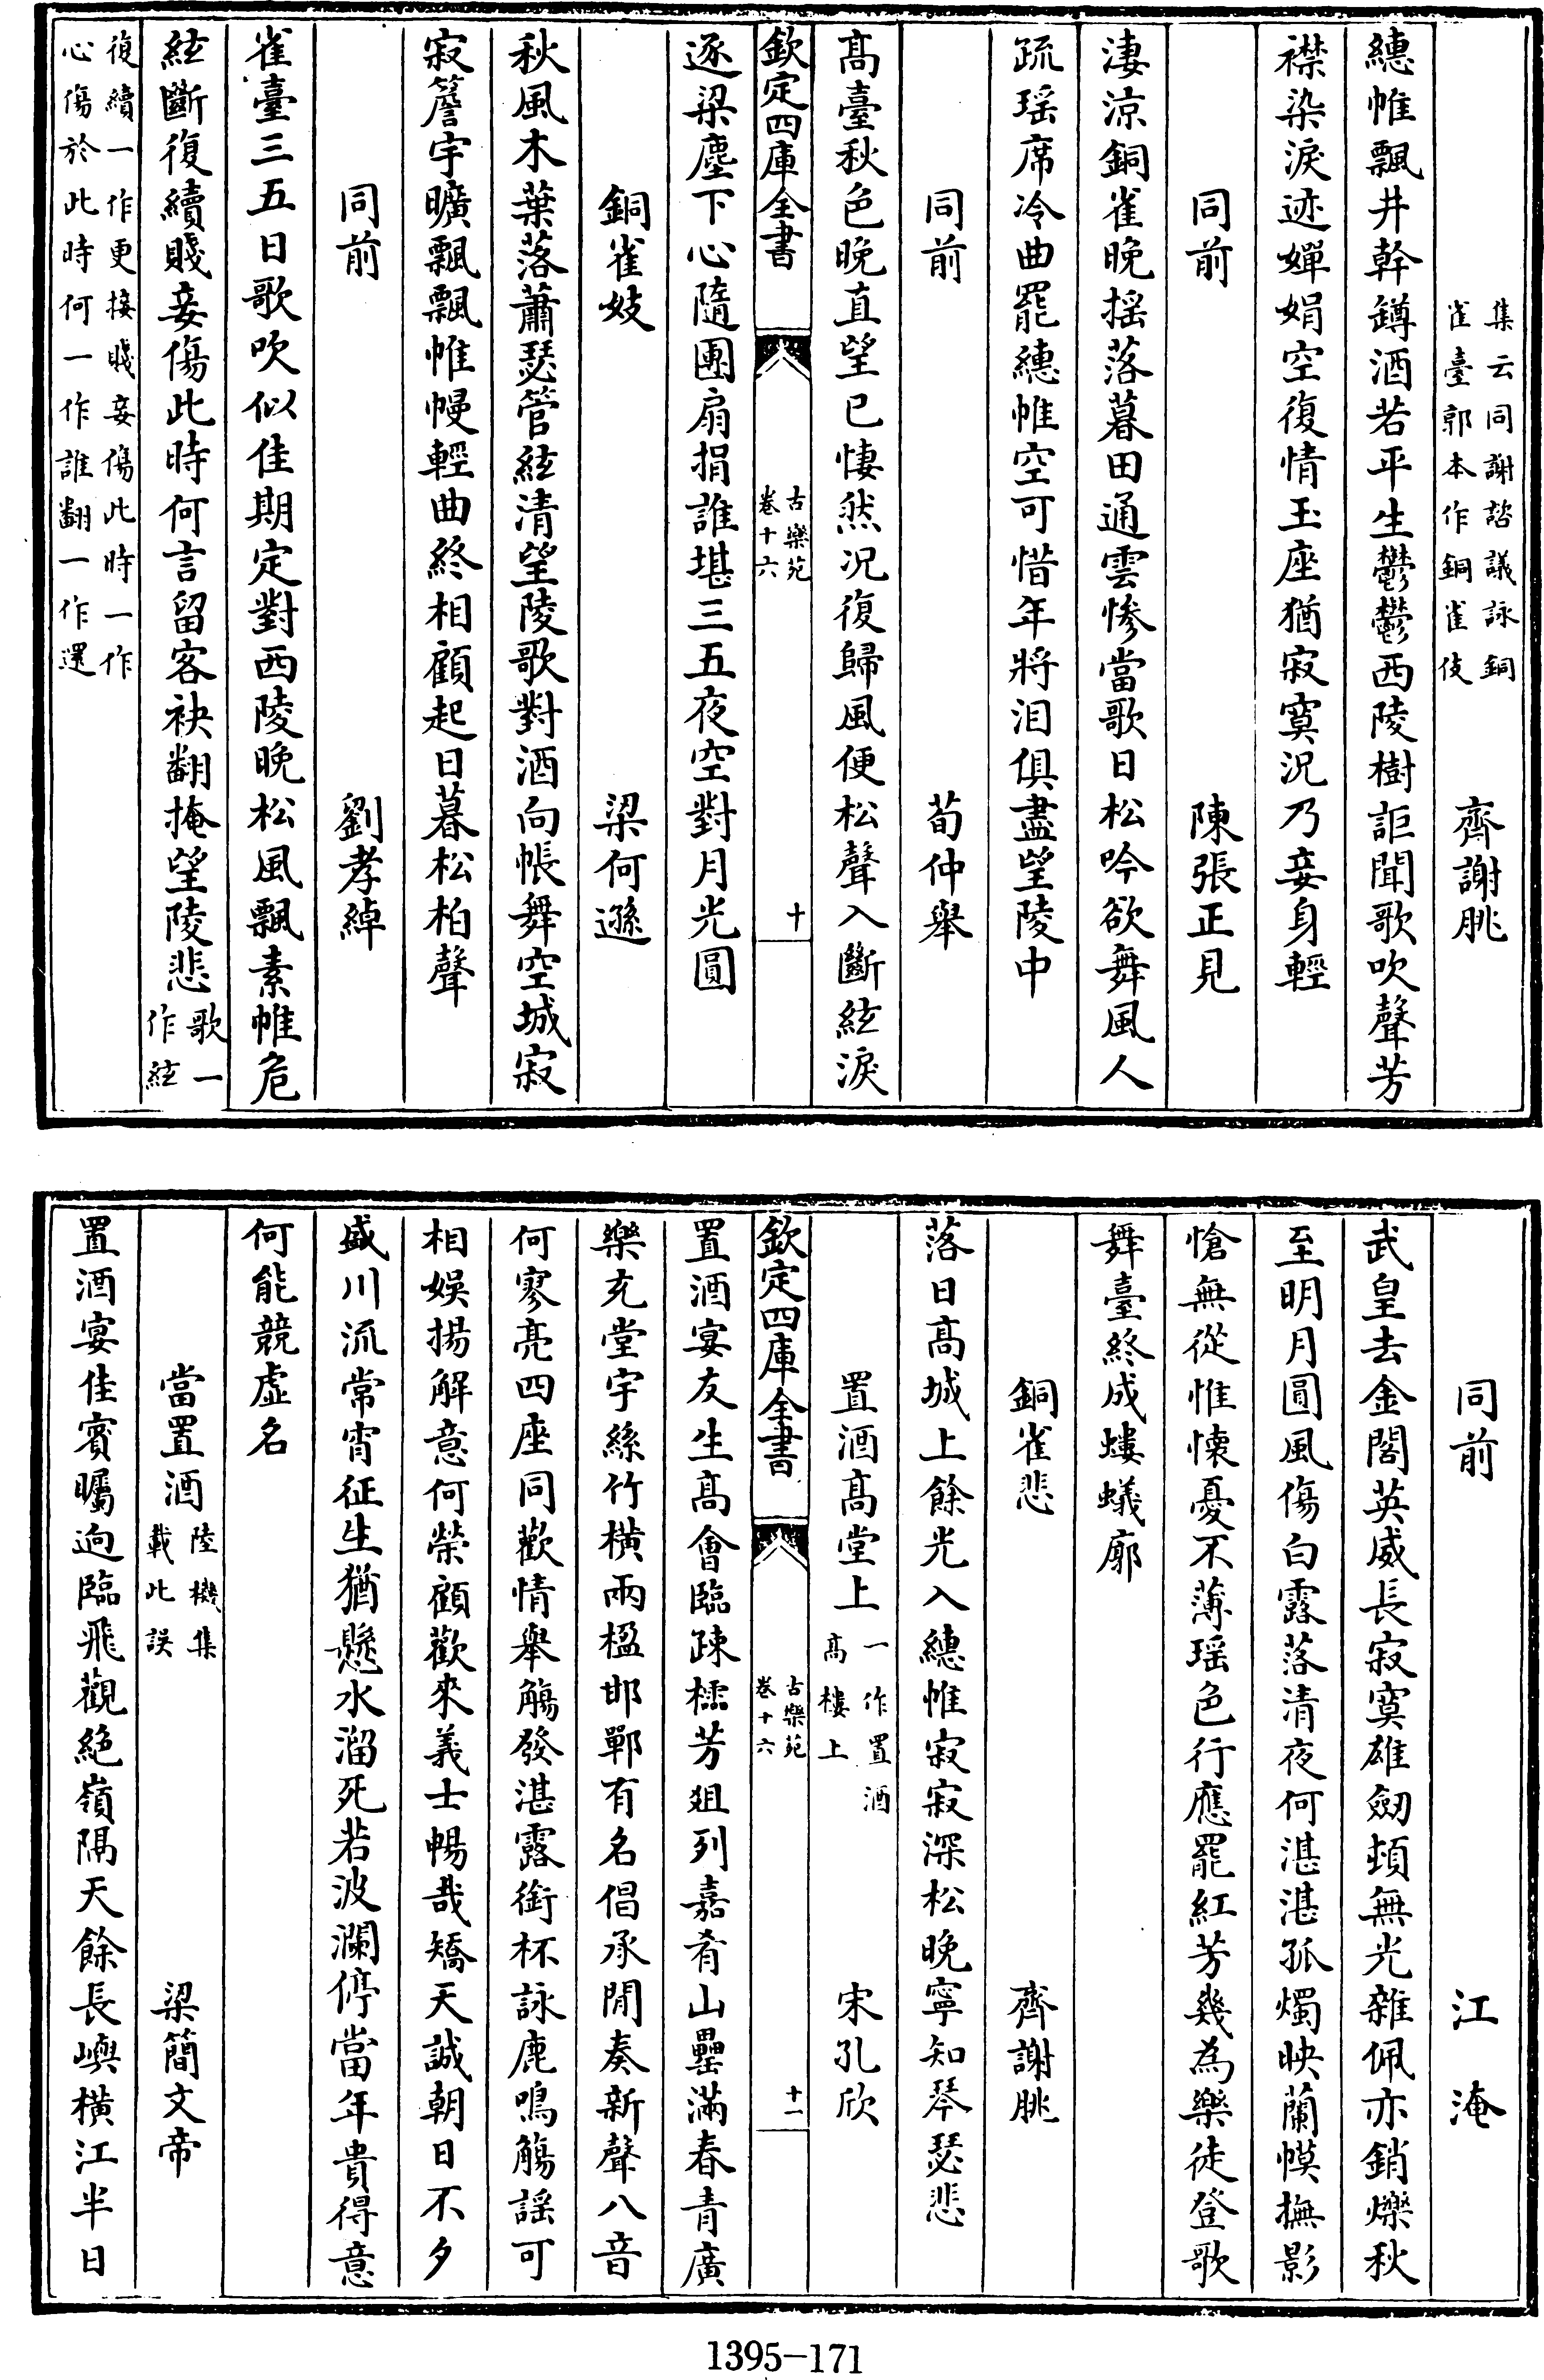 集云同謝諮議詠銅
雀臺郭本作銅雀伎
齊謝脁
繐帷飄井幹罇酒若平生鬱鬱西陵樹詎聞歌吹聲芳
襟染淚迹嬋娟空復情玉座猶寂寞況乃妾身輕
同前 陳張正見
淒涼銅雀晚摇落暮田通雲惨當歌日松吟欲舞風人
疏瑶席冷曲罷繐帷空可惜年將泪俱盡望陵中
同前 荀仲舉
髙臺秋色晚直望已悽然况復歸風便松聲入斷絃淚
欽定四庫全書 古樂苑 卷十六 十
逐梁塵下心隨團扇捐誰堪三五夜空對月光圓
銅雀妓 梁何遜
秋風木葉落蕭瑟管絃清望陵歌對酒向帳舞空城寂
寂簷宇曠飄飄帷幔輕曲終相顧起日暮松柏聲
同前 劉孝綽
雀臺三五日歌吹似佳期定對西陵晚松風飄素帷危
絃斷復續賤妾傷此時何言留客袂翻掩望陵悲
歌一
作絃
復續一作更接賤妾傷此時一作
心傷於此時何一作誰翻一作還
同前 江淹
武皇去金閣英威長寂寞雄劒頓無光雜佩亦銷爍秋
至明月圓風傷白露落清夜何湛湛孤燭映蘭幙撫影
愴無從惟懐憂不薄瑶色行應罷紅芳幾為樂徒登歌
舞臺終成螻蟻廓
銅雀悲 齊謝脁
落日髙城上餘光入繐帷寂寂深松晚寧知琴瑟悲
置酒髙堂上 一作置酒
髙樓上
宋孔欣
欽定四庫全書 古樂苑 卷十六 十一
置酒宴友生髙會臨疎櫺芳俎列嘉肴山罍滿春青廣
樂充堂宇絲竹横兩楹邯鄲有名倡承閒奏新聲八音
何寥亮四座同歡情舉觴發湛露銜杯詠鹿鳴觴謡可
相娯揚解意何榮顧歡來義士暢哉矯天誠朝日不夕
盛川流常宵征生猶懸水溜死若波瀾停當年貴得意
何能競虚名
當置酒 陸機集
載此誤
梁簡文帝
置酒宴佳賓矚迥臨飛觀絶嶺隅天餘長嶼横江半日
1395-171